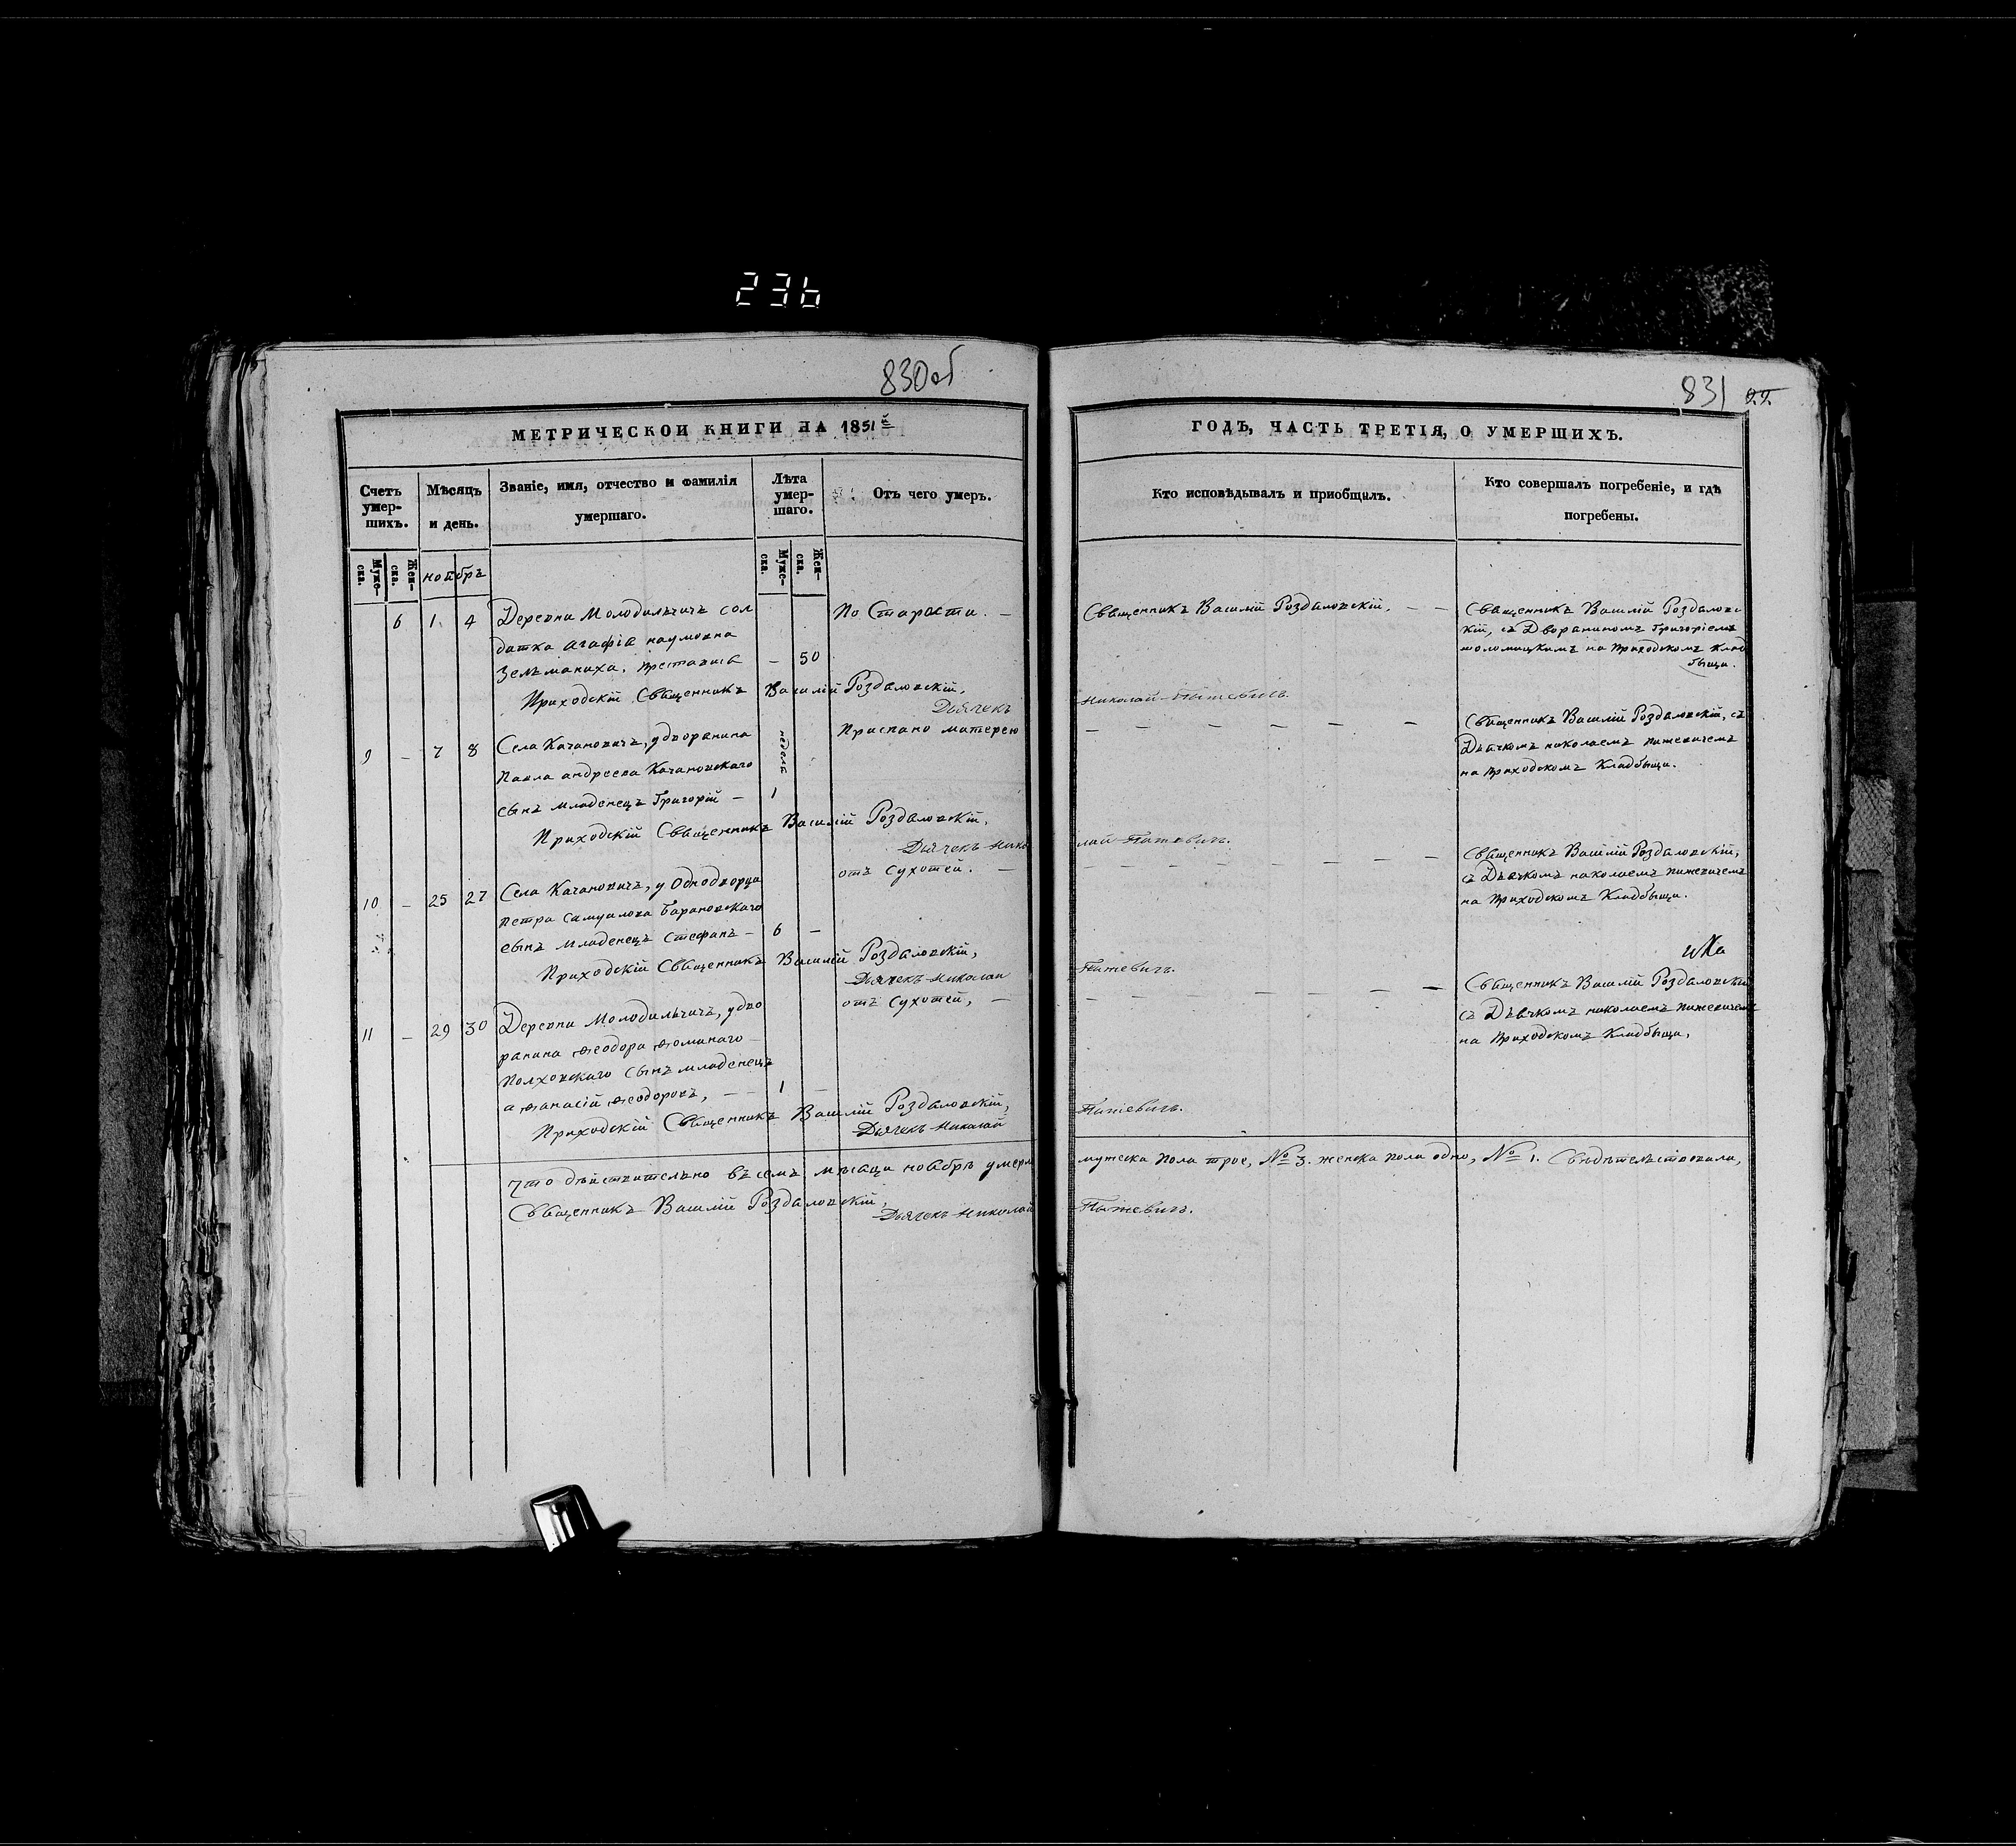 236
830об
831
МЕТРИЧЕСКОЙ КНИГИ НА 1851й
ГОДЪ, ЧАСТЬ ТРЕТІЯ, О УМЕРШИХЪ.
Счетъ умер-шихъ.
Мѣсяцъ и день.
Званіе, имя, отчество и фамилія
умершаго.
Лѣта умер-шаго.
Отъ чего умеръ.
Кто исповѣдывалъ и приобщалъ.
Кто совершалъ погребеніе, и гдѣ
погребены.
Муже-ска.
Жен-ска.
ноябръ
Муже-ска.
Жен-ска.
6 1. 4 Деревни Молодильчичъ сол
датка агафіа наумовна
Зельманиха. преставися – 50
По Старости. –
Священникъ Василій Роздаловскій. – –
Священникъ Василій Роздаловс
кій, съ Дворяниномъ Григоріемъ
на приходскомъ клад
быщи.
Приходскій Священникъ Василій Роздаловскій,
Дьячекъ Николай Пытевичъ.
9 – 7 8 Села Качановичъ, у дворянина
Павла андреева Качановскаго
сынъ младенецъ Григорій – 1
неделя
Приспано матерею
– – – – – –
Священникъ Василій Роздаловскій, съ
Дьячкомъ николаемъ пижевичемъ
на приходскомъ Кладбыщи.
Приходскій Священникъ Василій Роздаловскій,
Дьячекъ Нико лай Пытевичъ.
10 – 25 27 Села Качановичъ, у Однодворца
петра самуилова Барановскаго
сынъ младенецъ Стефанъ – 6 –
отъ Сухотей. –
– – – – – – –
Священникъ Василій Роздаловскій,
съ Дьячкомъ николаемъ пижевичемъ
на приходскомъ Кладбыщи.
Приходскій Священникъ Василій Роздаловскій,
Дьячекъ Николай Пытевичъ.
11 – 29 30 Деревни Молодильчичъ, у дво
рянина ѳеодора ѳоминаго
Полховскаго сынъ младенецъ
аѳанасій ѳеодоровъ, – – 1 –
отъ Сухотей, –
– – – – – – –
Священникъ Василій Роздаловскій
съ Дьячкомъ николаемъ пижевичемъ
на приходскомъ Кладбыщи,
Приходскій Священникъ Василій Роздаловскій,
Дьячекъ Николай Пытевичъ.
Что дѣйствительно въ семъ мѣсяци ноябрѣ умерл мужеска пола трое, № 3. женска пола одно, № 1. Свидѣтельствовали,
Священникъ Василій Роздаловскій,
Дьячекъ Николай Пытевичъ.